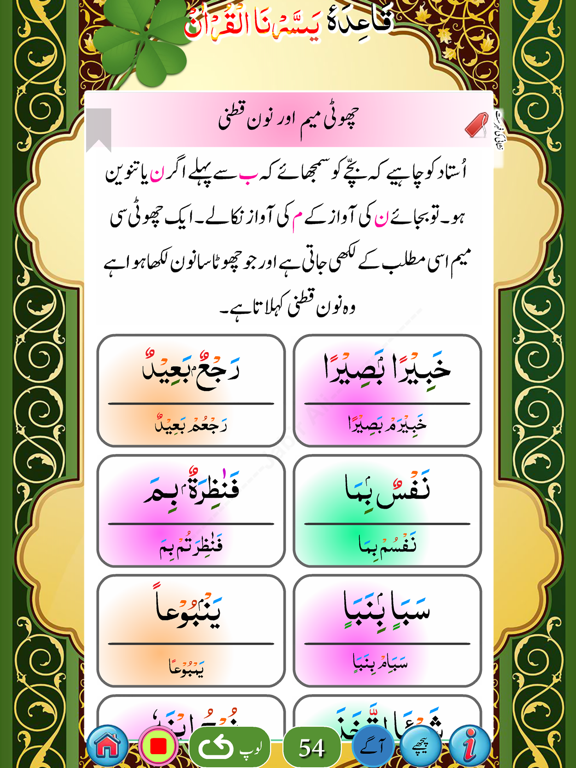 قَاعِدَہٗ یَسَّرْنَا الْقُرْاٰنْ
چھوٹی میم اور نون قطنی
اُستاد کو چاہیے کہ بچّے کو سمجھائے کہ ب سے پہلے اگر ن یا تنوین
ہو۔ تو بجائے ن کی آواز کے م کی آواز نکالے۔ ایک چھوٹی سی
میم اسی مطلب کے لکھی جاتی ہے اور جو چھوٹا سا نون لکھا ہوا ہے
وہ نون قطنی کہلاتا ہے۔
خَبِيْرًاۢ بَصِيْرًا
خَبِيْرَمْ بَصِيْرًا
رَجْعٌۢ بَعِيْدٌ
رَجْعُمْ بَعِيْدٌ
نَفْسٌۢ بِمَا
نَفْسُمْ بِمَا
فَنٰظِرَةٌۢ بِمَ
فَنٰظِرَتُمْ بِمَ
سَبَاٍۢ بِنَبَاٍ
سَبَاِمْ بِنَبَاٍ
يَنْۢبُوْعاً
يَمْبُوْعًا
لوپ
54
آگے
پیچھے